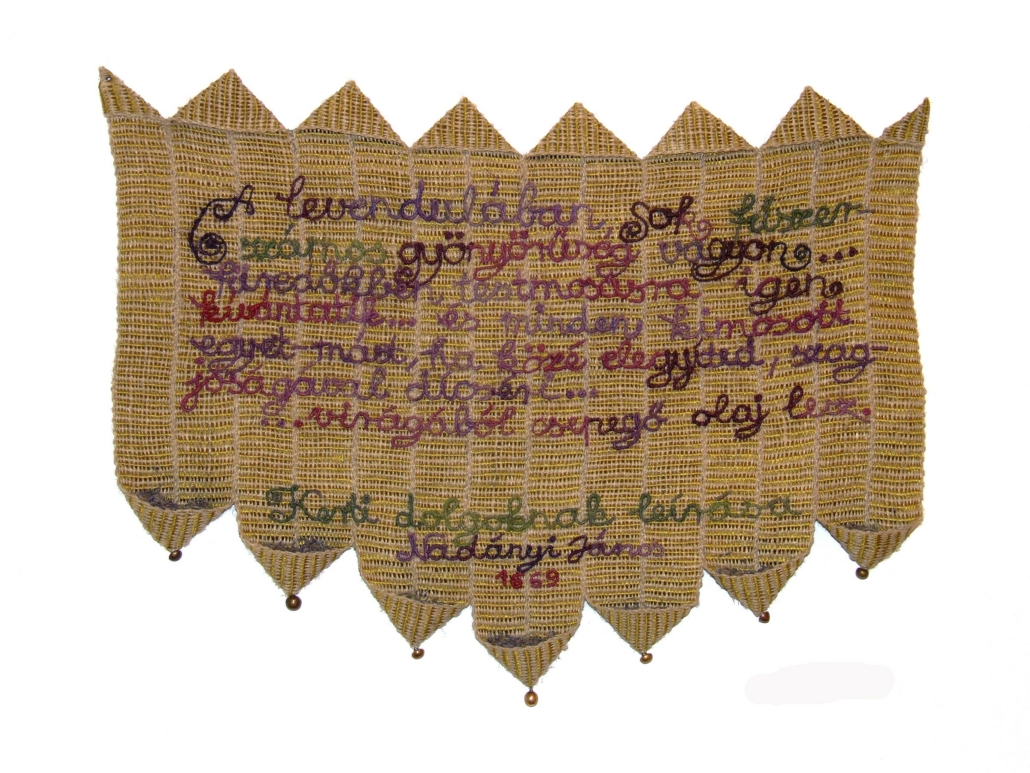 A levendulában, sok fűszer-
számos gyönyörűség vagyon...
füredőkben, testmosásra igen
kivántatik... és minden kimosott
egyet-mást, ha közé elegyited, szag-
jóságával dicsért...
...virágából csepegő olaj lesz.
Kerti dolgoknak leírása
Nadányi János
1669